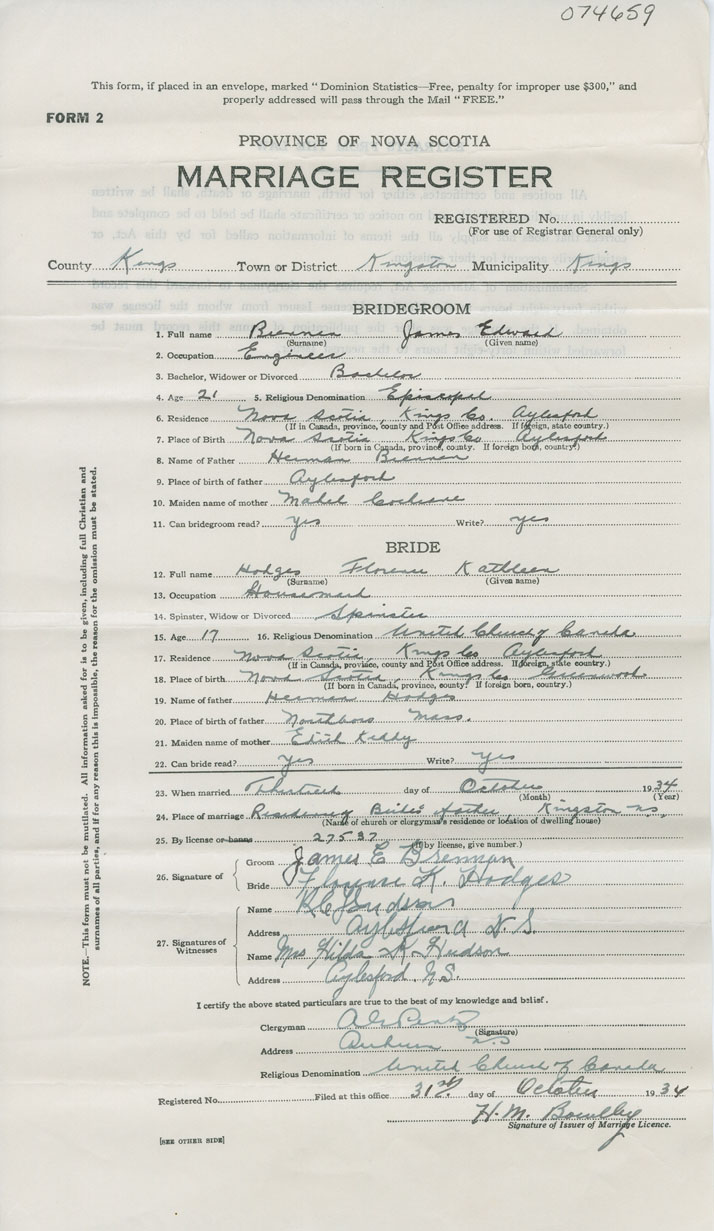 074659
This form, if placed in an envelope, marked "Dominion Statistics—Free, penalty for improper use $300," and
properly addressed will pass through the Mail "FREE."
FORM 2
PROVINCE OF NOVA SCOTIA
MARRIAGE REGISTER
REGISTERED No.
(For use of Registrar General only)
County Kings Town or District Kingston Municipality Kings
BRIDEGROOM
1. Full name Brennan James Edward
(Surname) (Given name)
2. Occupation Engineer
3. Bachelor, Widower or Divorced Bachelor
4. Age 21 5. Religious Denomination Episcopal
6. Residence Nova Scotia, Kings Co. Aylesford
(If in Canada, province, county and Post Office address. If foreign, state country.)
7. Place of Birth Nova Scotia Kings Co Aylesford
(If born in Canada, province, county. If foreign born, country.)
8. Name of Father Herman Brennan
9. Place of birth of father Aylesford
10. Maiden name of mother Mabel Cochrane
11. Can bridegroom read? yes Write? yes
BRIDE
12. Full name Hodges Florence Kathleen
(Surname) (Given name)
13. Occupation Housemaid
14. Spinster, Widow or Divorced Spinster
15. Age 17 16. Religious Denomination United Church of Canada
17. Residence Nova Scotia, Kings Co Aylesford
(If in Canada, province, county and Post Office address. If foreign, state country.)
18. Place of birth Nova Scotia, Kings Co Greenwood
(If born in Canada, province, county. If foreign born, country.)
19. Name of father Herman Hodges
20. Place of birth of father Northboro Mass.
21. Maiden name of mother Edith Keddy
22. Can bride read? yes Write? yes
23. When married Thirtieth day of October 1934
(Month) (Year)
24. Place of marriage Residence Brides father, Kingston N.S.
(Name of church or clergyman's residence or location of dwelling house)
25. By license or banns 27537
(If by license, give number.)
26. Signature of
Groom James E Brennan
Bride Florence K. Hodges
27. Signatures of Witnesses
Name Hudson
Address Aylesford N.S.
Name Mrs Hilda K. Hudson
Address Aylesford N.S.
I certify the above stated particulars are true to the best of my knowledge and belief.
Clergyman
(Signature)
Address N.S
Religious Denomination United Church of Canada
Registered No. Filed at this office 31st day of October 1934
H. M.
Signature of Issuer of Marriage Licence.
[SEE OTHER SIDE]
NOTE.—This form must not be mutilated. All information asked for is to be given, including full Christian and
surnames of all parties, and if for any reason this is impossible, the reason for the omission must be stated.